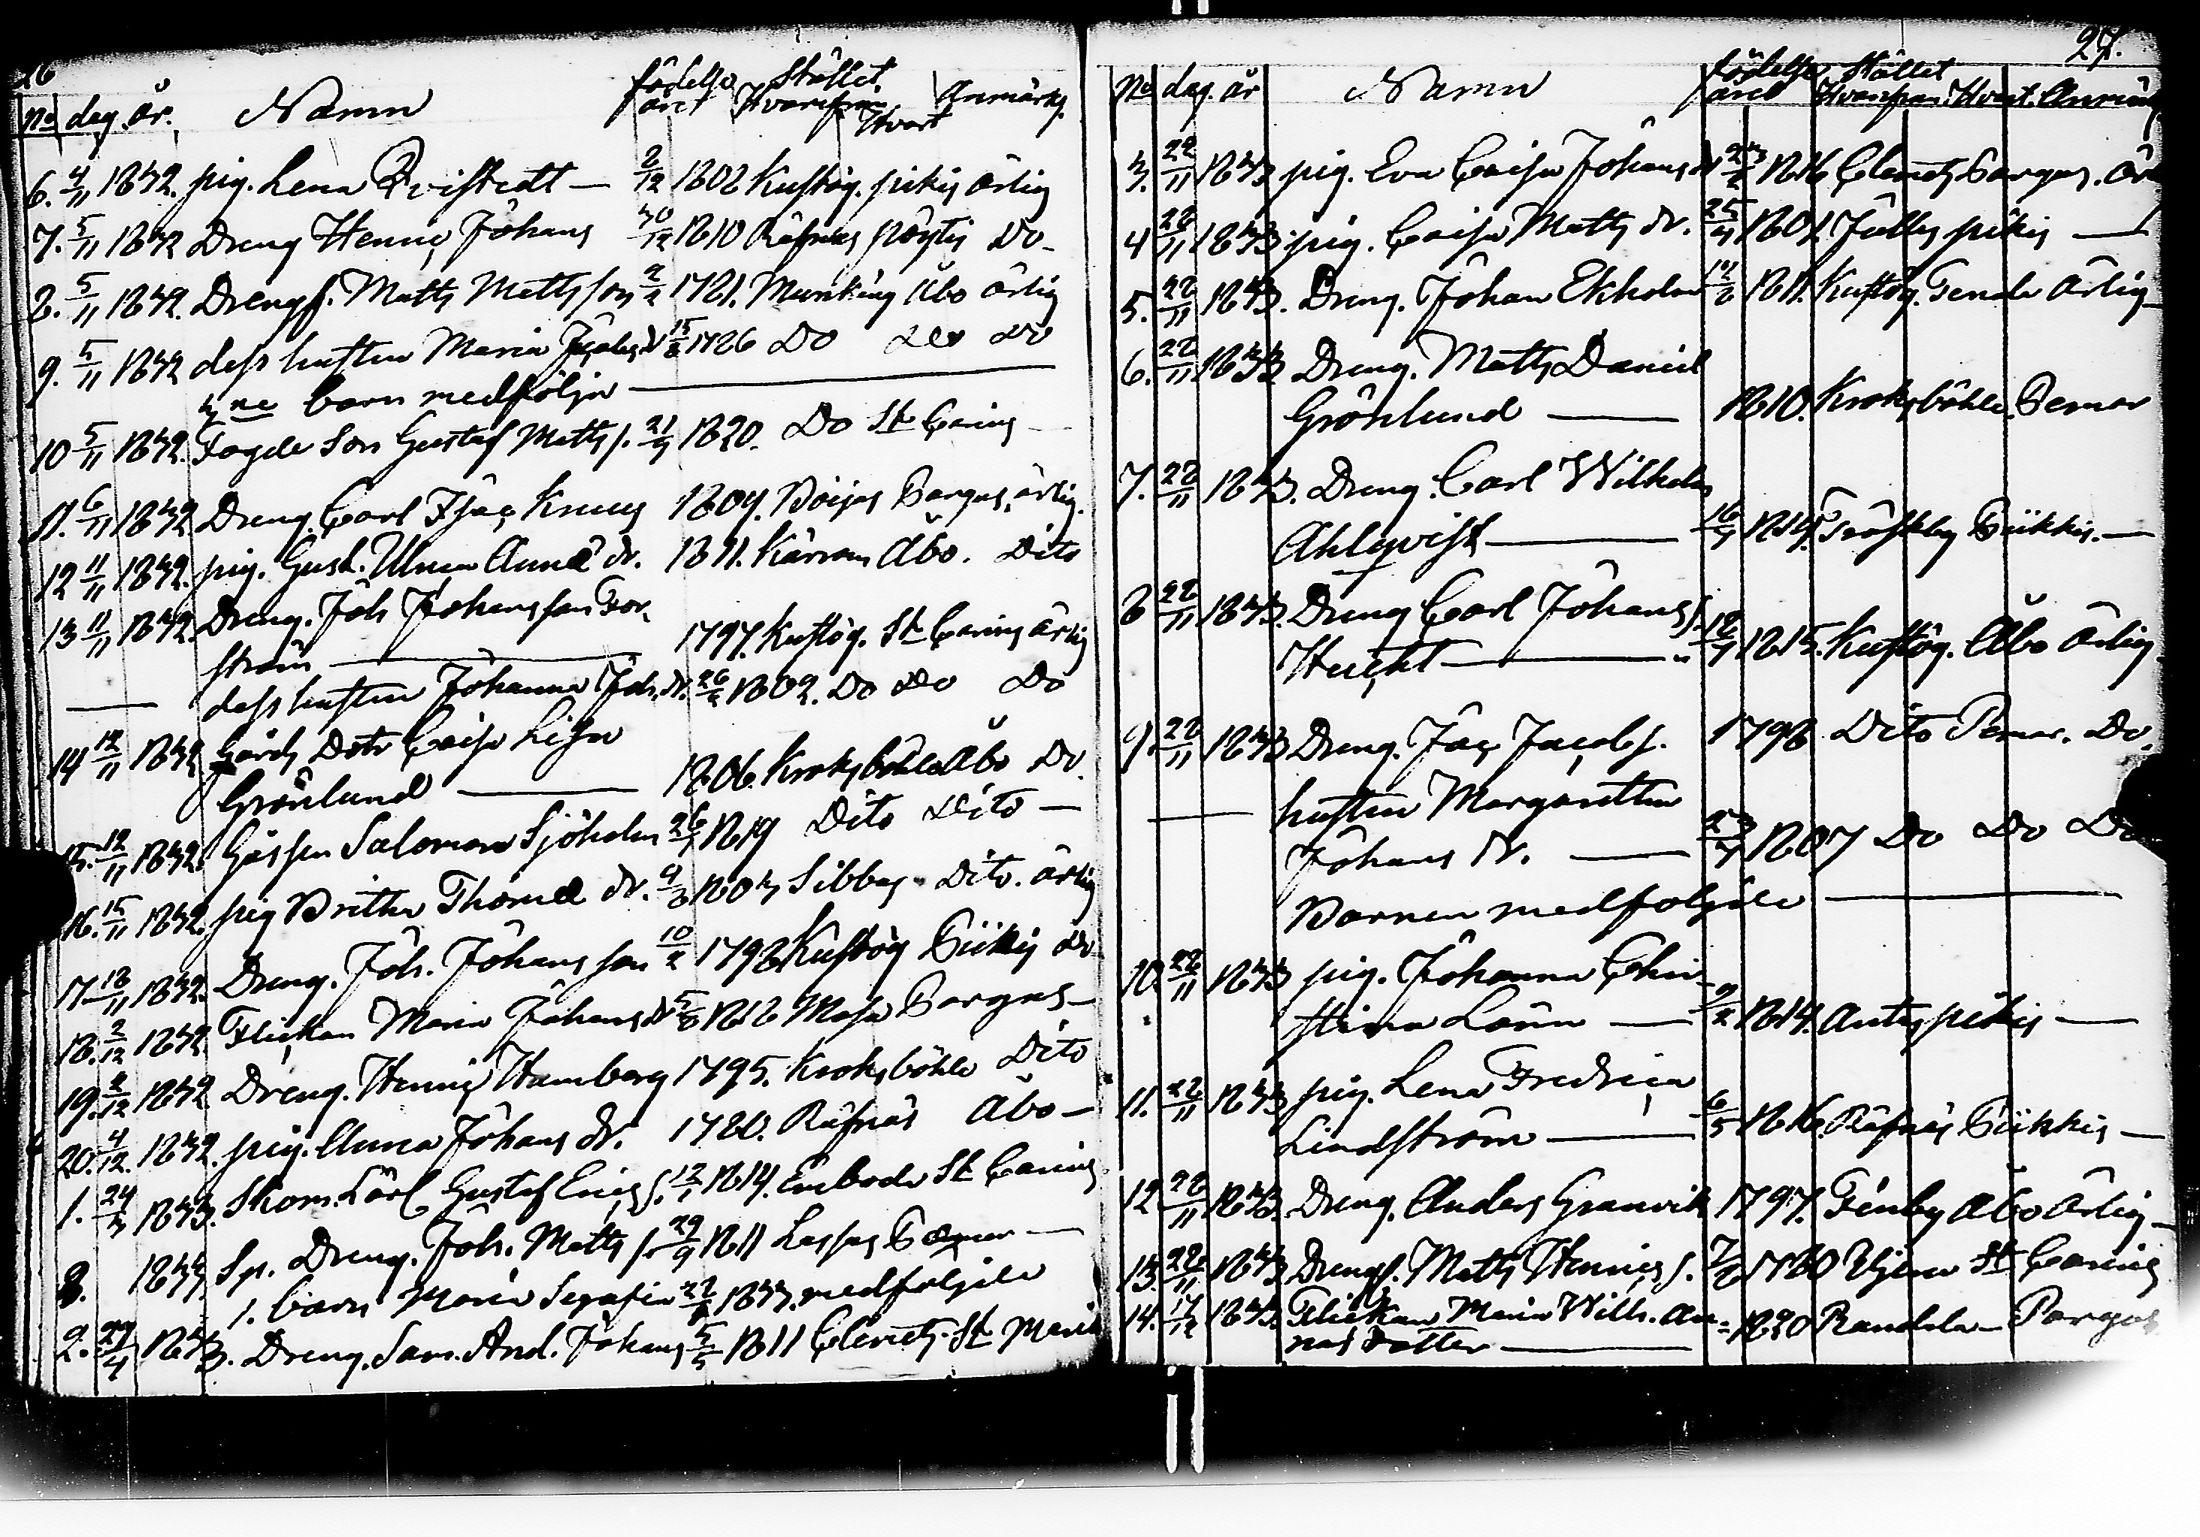 26
No dag. år. Namn födelse året Stället Hvarifrån Hvart Anmärkn.
6. 4/11 1832. pig. Lena Qvistedt — 2/12 1808 Kustög. pikis ärlig
7. 5/11 1832 Dreng Henric Johans 30/12 1810 Räfnäs pöytis Do
8. 5/11 1832. Drengs. Matts Mattsson 2/2 1781. Munkäng Åbo ärlig
9. 5/11 1832 dess hustru Maria Jacobs dr 15/8 1786 Do Do Do
3ne barn medfölja —
10 5/11 1832. Fogde Son Gustaf Matts s. 21/9 1820. Do St Carins
11. 6/11 1832 Dreng. Carl Isac Kruus 1809. Böijas Pargas. ärlig.
12 11/11 1832. pig. Gust. Ulrica Anna dr. 1811. Kärram Åbo. Dito
13 11/11 1832. Dreng. Joh Johansson For-
ström — 1797. Kustög. St Carins ärlig
— dess hustru Johanna Joh. dr. 26/2 1802. Do Do Do
14 12/11 1832 Gårds Dotr Caisa Lisa
Grönlund — 1806. Kroksböhle Åbo Do.
15. 12/11 1832. Gossen Salomon Sjöholm 26/7 1819 Dito Dito —
16. 15/11 1832. pig Britha Thomæ dr. 9/8 1803 Sibbas. Dito. ärlig
17. 18/11 1832. Dreng. Joh. Johansson 10/2 1798 Kustög Piikis Do
18. 2/12 1832 Flickan Maria Johans dr 5/8 1818 Masa Pargas —
19. 2/12 1832 Dreng. Henric Hamberg 1795. Kroksböhle Dito
20. 4/12. 1832. pig. Anna Johans dr. 1780. Räfnäs Åbo —
1. 24/3 1833. Skom. Lärl Gustaf Erics s. 12/1 1814. Embode St Carins
8. 1833 Sp. Dreng. Joh. Matts s. 29/9 1811 Lassas Pemar —
1. barn Maria Serafia 22/8 1833. medföljde
2. 27/4 1833. Dreng. Sam. And. Johans 5/5 1811 Clemets. St Marie
27.
No dag. år Namn födelse året Stället Hvarifrån Hvart. Anmärk
3. 22/11 1833 pig. Eva Caisa Johans dr 23/2 1816 Clemets Pargas. Är
4 22/11 1833 pig. Caisa Matts dr. 25/11 1801. Jullas pikis —
5. 22/11 1833. Dreng. Johan Ekholm 14/2 1811. Kustög. Tenala Ärlig
6. 22/11 1833. Dreng. Matts Daniel
Grönlund — 1810. Kroksböhle. Pemar
7. 22/11 1833. Dreng. Carl Wilhelm
Ahlqvist — 16/7 1814. Träskby Piikkis. —
8 22/11 1833. Dreng Carl Johans s.
Heicht — 12/7 1815. Kustög. Åbo Ärlig
9. 22/11 1833 Dreng. Jac Jacobs. 1798 Dito Pemar. Do.
— hustru Margaretha
Johans dr. — 23/7 1807 Do Do Do
Barnen medföljde —
10. 22/11 1833 pig. Johanna Chri-
stina Lönn — 9/2 1814. Antes pikis —
11. 22/11 1833 pig. Lena Fredrica
Lindström — 6/5 1816. Räfnäs Piikkis —
12. 22/11 1833. Dreng. Anders Granvik 1797. Finby Åbo Ärlig —
13. 22/11 1833 Drengs. Matts Henrics s. 7/8 1780 St Carins
14. 17/12 1833. Flickan Maria Wilh. An-
nas Dotter — 1820 Randala — Pargas